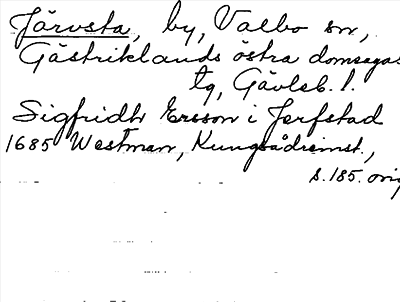 Järvsta, by, Valbo sn,
Gästriklands östra domsagas
tg, Gävleb. l.
Sigfridh Ersson i Jerfstad
1685 Westman, Kungsådreinst.,
s. 185. orig